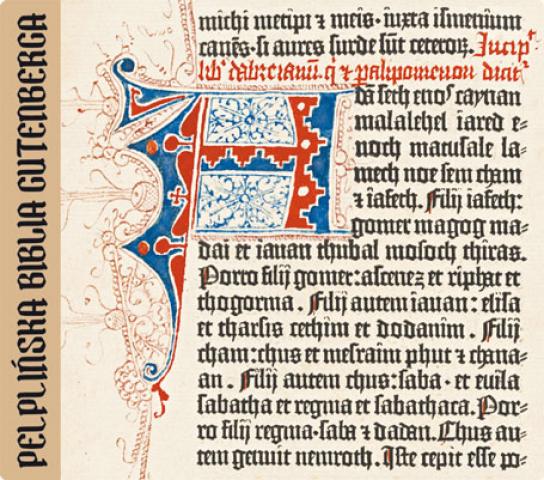 PELPLIŃSKA BIBLIA GUTENBERGA
michi metipi ⁊ meis· iuxta ismenium
canēs· si aures surde sūt ceteroꝝ. Incip̄t
lib' dabreiamin q' ⁊ palipomenon dicit'
A
dā seth enos caynan
malalehel iared e-
noch matusale la-
mech noe sem cham
⁊ iafeth. Filij iafeth:
gomer magog ma-
dai et iauan thubal mosoch thiras.
Porro filij gomer: ascenez et riphat et
thogorma. Filij autem iauan: elisa
et tharsis cethim et dodanim. Filij
cham: chus et mesraim phut ⁊ chana-
an. Filij autem chus: saba· et euila
sabatha et regma et sabathaca. Por-
ro filij regma· saba ⁊ dadan. Chus au-
tem genuit nemroth. Iste cepit esse po-